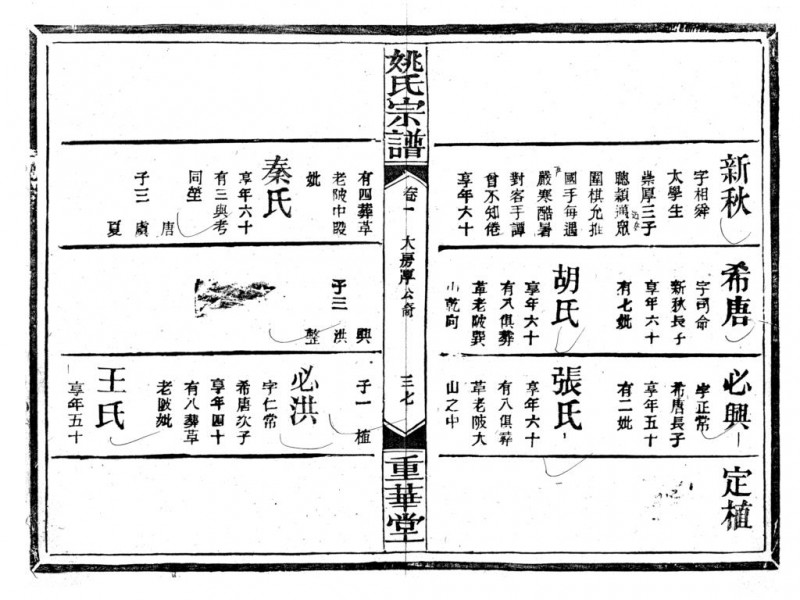 姚氏宗譜
卷一
大房厚公裔
三七
重華堂
新秋
字相舜
太學生
崇厚三子
聰穎過眾
圍棋尤推
國手每遇
嚴寒酷暑
對客手譚
曾不知倦
享年六十
有四葬草
老陂中畯
妣
秦氏
享年六十
有三與考
同塋
子三
唐
虞
夏
希唐
字司命
新秋長子
享年六十
有七妣
胡氏
享年六十
有八俱葬
草老陂巽
山乾向
子三
興
洪
整
必興
字正常
希唐長子
享年五十
有二妣
張氏
享年六十
有八俱葬
草老陂大
山之中
子一
植
必洪
字仁常
希唐次子
享年四十
有八葬草
老陂妣
王氏
享年五十
定植